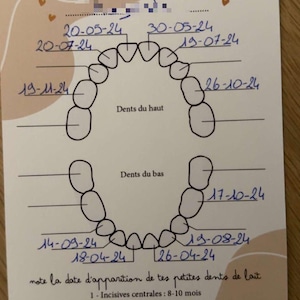 20-05-24 30-05-24
20-07-24 19-07-24
19-11-24 26-10-24
Dents du haut
Dents du bas
17-10-24
14-09-24 19-08-24
18-04-24 26-04-24
note la date d'apparition de tes petites dents de lait
1 - Incisives centrales : 8-10 mois